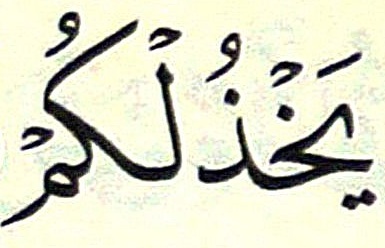 يَخْذُلْكُمْ